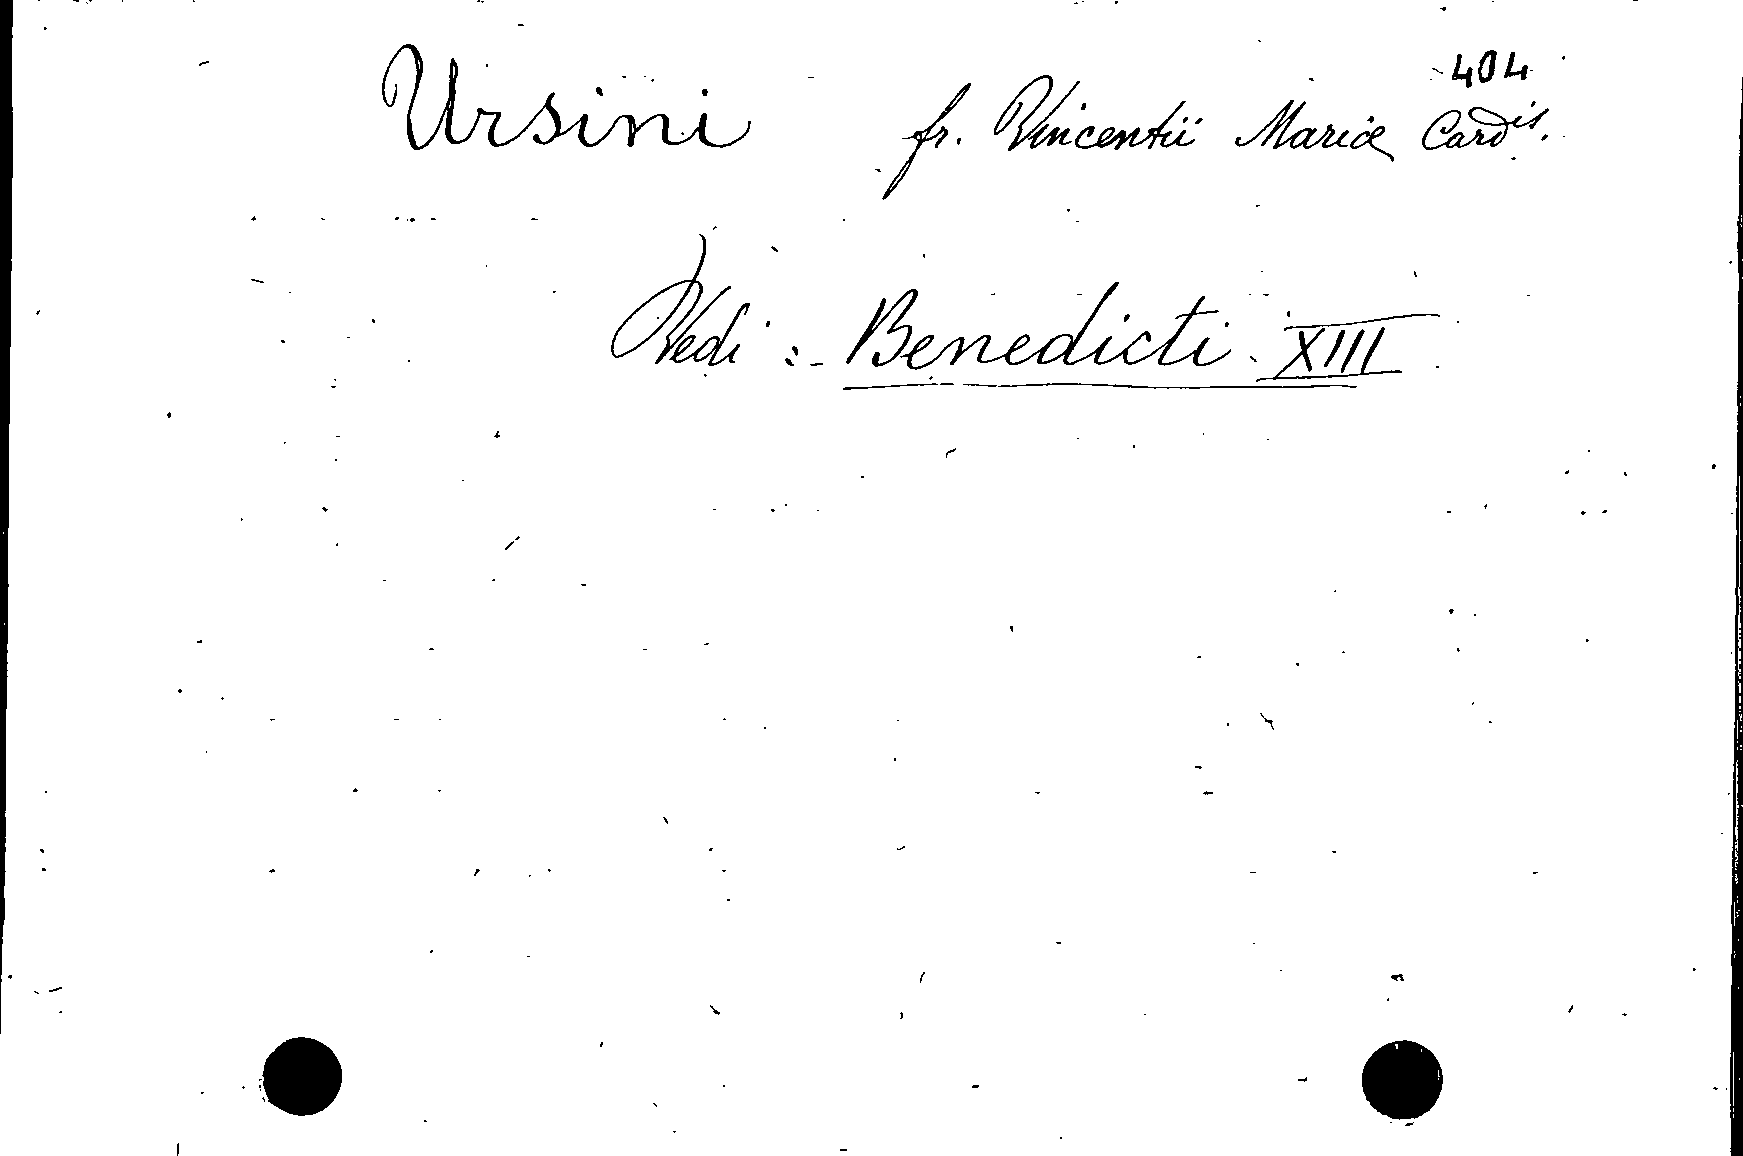 404
Ursini fr. Vincentii Mariæ Card^is.
Vedi :- Benedicti XIII